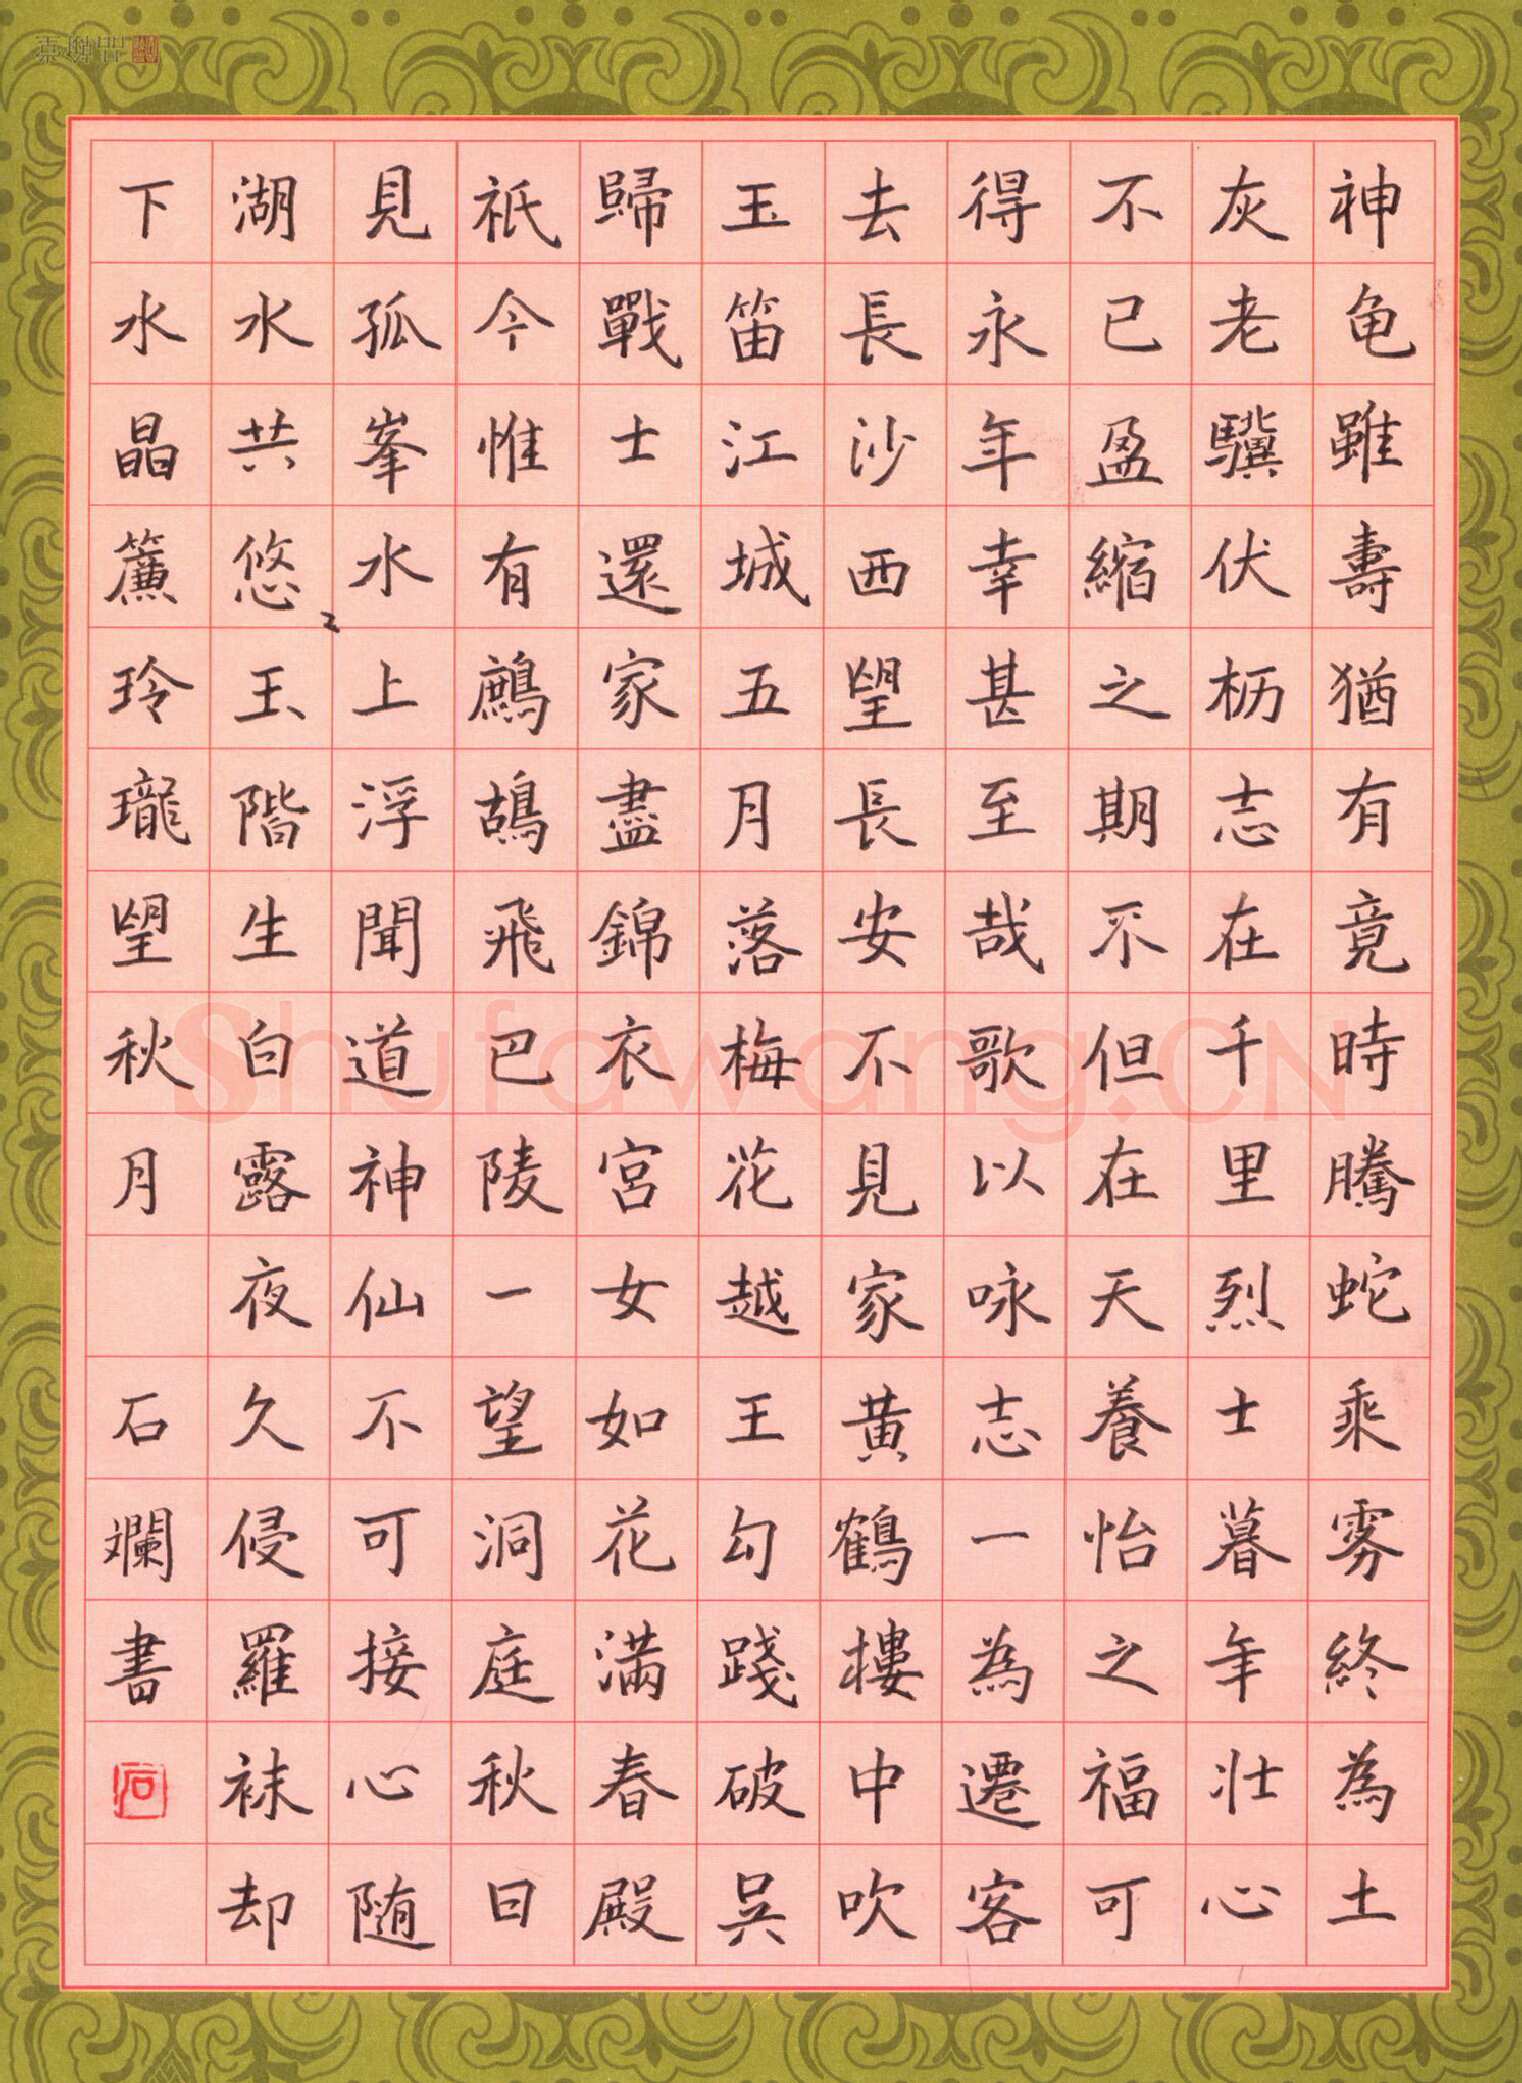 神龟雖壽猶有竟時騰蛇乘雾終為土
灰老驥伏枥志在千里烈士暮年壯心
不已盈縮之期不但在天養怡之福可
得永年幸甚至哉歌以咏志一為遷客
去長沙西望長安不見家黄鶴樓中吹
玉笛江城五月落梅花越王勾踐破吳
歸戰士還家盡錦衣宮女如花滿春殿
祇今惟有鷓鴣飛巴陵一望洞庭秋日
見孤峯水上浮聞道神仙不可接心随
湖水共悠〻玉階生白露夜久侵羅袜却
下水晶簾玲瓏望秋月
石斕書
石
Shufawang.CN